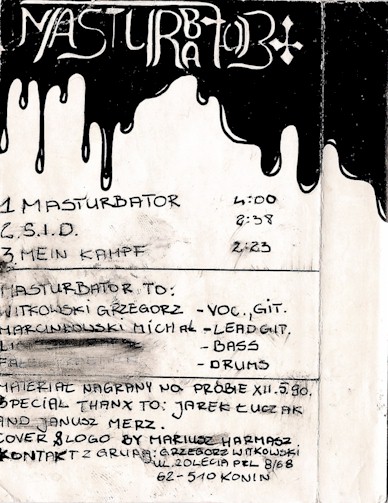 MASTURBATOR
1 MASTURBATOR 4:00
2. S.I.D. 2:38
3. MEIN KAMPF 2:23
MASTURBATOR TO:
WITKOWSKI GRZEGORZ - VOC., GIT.
MARCINKOWSKI MICHAŁ - LEADGIT.
- BASS
- DRUMS
MATERIAŁ NAGRANY NA PRÓBIE XII.5.90.
SPECIAL THANX TO: JAREK ŁUCZAK
AND JANUSZ MERZ.
COVER & LOGO BY MARIUSZ HARMASZ
KONTAKT Z GRUPĄ: GRZEGORZ WITKOWSKI
UL. 20LECIA PRL 8/68
62-510 KONIN